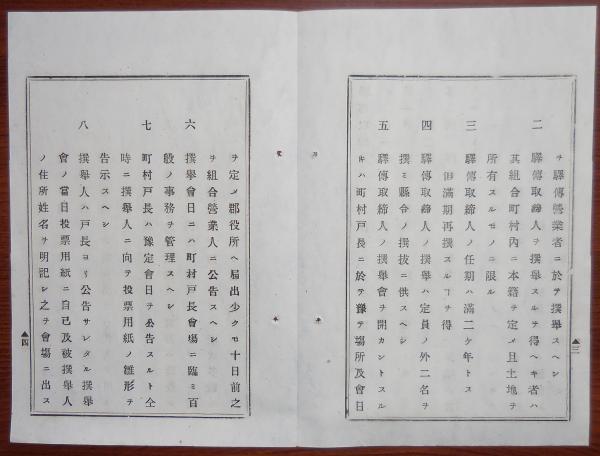 ヲ驛傳營業者ニ於テ撰擧スヘシ
二 驛傳取締人ヲ撰擧スルヲ得ヘキ者ハ
其組合町村內ニ本籍ヲ定メ且土地ヲ
所有スルモノニ限ル
三 驛傳取締人ノ任期ハ滿二ケ年トス
但滿期再撰スルヿヲ得
四 驛傳取締人ノ撰擧ハ定員ノ外二名ヲ
撰ミ縣令ノ撰拔ニ供スヘシ
五 驛傳取締人ノ撰擧會ヲ開カントスル
キハ町村戶長ニ於テ豫テ場所及會日
三
ヲ定メ郡役所ヘ屆出少クモ十日前之
ヲ組合營業人ニ公告スヘシ
六 撰擧會日ニハ町村戶長會場ニ臨ミ百
般ノ事務ヲ管理スヘシ
七 町村戶長ハ豫定會日ヲ公告スルト仝
時ニ撰擧人ニ向テ投票用紙ノ雛形ヲ
告示スヘシ
八 撰擧人ハ戶長ヨリ公告サレタル撰擧
會ノ當日投票用紙ニ自己及被撰擧人
ノ住所姓名ヲ明記シ之ヲ會場ニ出ス
四